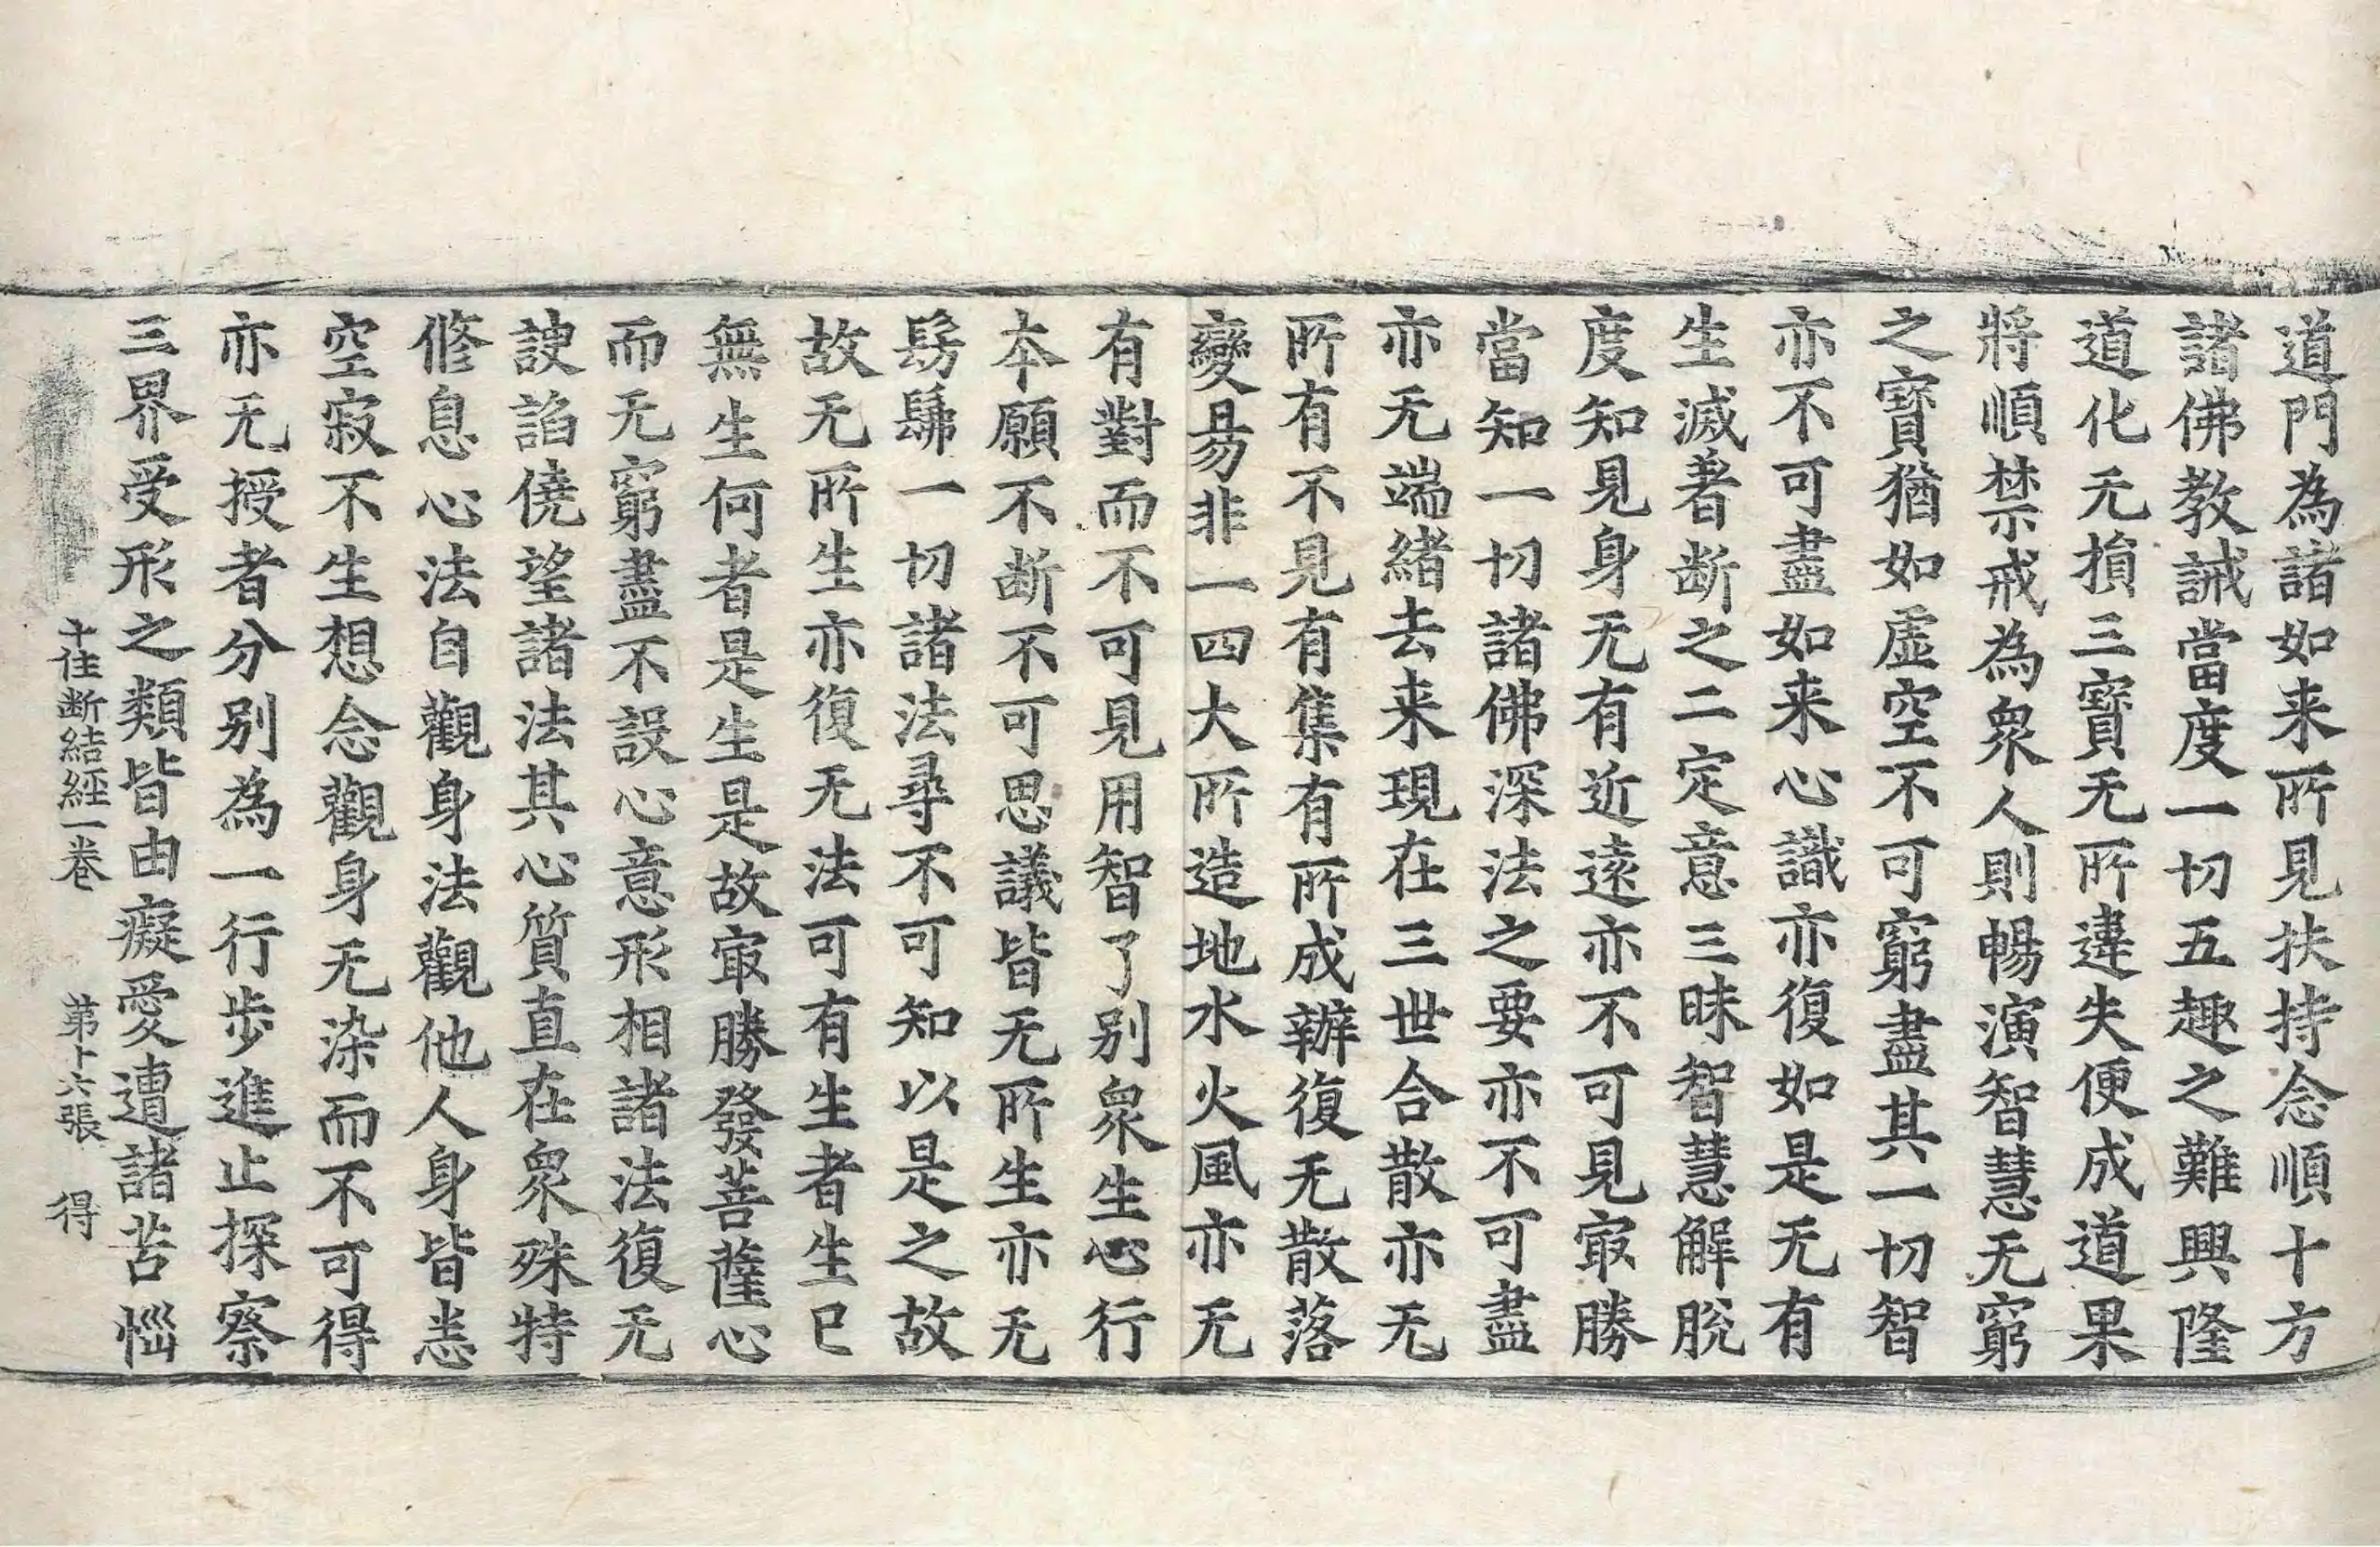 道門為諸如来所見扶持念順十方
諸佛教誡當度一切五趣之難興隆
道化无損三寶无所違失便成道果
將順禁戒為衆人則暢演智慧无窮
之寶猶如虛空不可窮盡其一切智
亦不可盡如来心識亦復如是无有
生滅著断之二定意三昧智慧解脫
度知見身无有近遠亦不可見㝡勝
當知一切諸佛深法之要亦不可盡
亦无端緒去来現在三世合散亦无
所有不見有集有所成辦復无散落
變易非一四大所造地水火風亦无
有對而不可見用智了别衆生心行
本願不断不可思議皆无所生亦无
髣髴一切諸法尋不可知以是之故
故无所生亦復无法可有生者生已
無生何者是生是故㝡勝發菩薩心
而无窮盡不設心意形相諸法復无
諛諂僥望諸法其心質直在衆殊特
脩息心法自觀身法觀他人身皆悉
空寂不生想念觀身无染而不可得
亦无授者分别為一行步進止探察
三界受形之類皆由癡愛遭諸苦惱
十住断結經一卷 第十六張 得